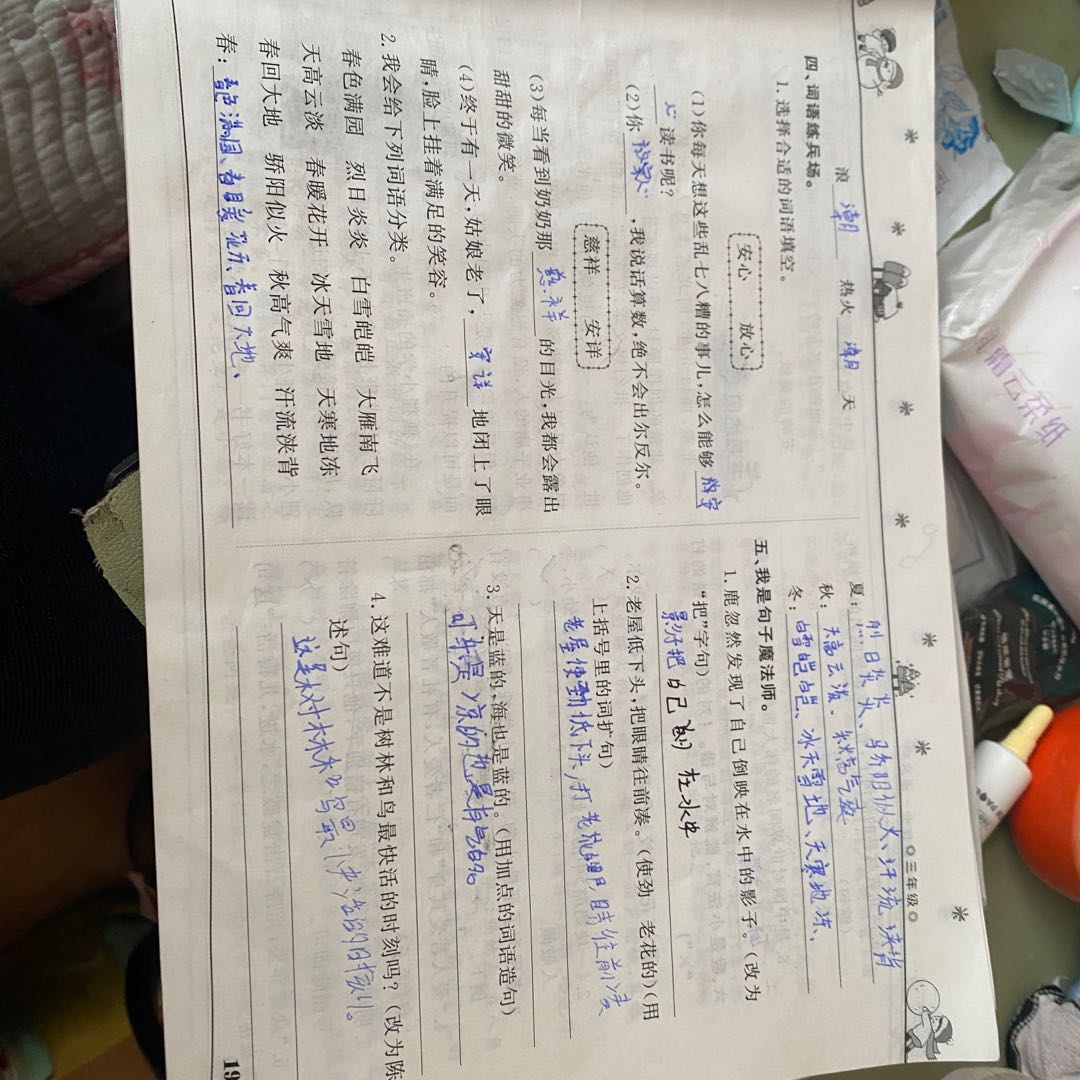 浪 潮 热火 潮 天
四、词语练兵场。
1. 选择合适的词语填空。
安心 放心
(1)你每天想这些乱七八糟的事儿,怎么能够
心 读书呢?
(2)你 ,我说话算数,绝不会出尔反尔。
慈祥 安详
(3)每当看到奶奶那 慈祥 的目光,我都会露出
甜甜的微笑。
(4)终于有一天,姑娘老了, 安详 地闭上了眼
睛,脸上挂着满足的笑容。
2. 我会给下列词语分类。
春色满园 烈日炎炎 白雪皑皑 大雁南飞
天高云淡 春暖花开 冰天雪地 天寒地冻
春回大地 骄阳似火 秋高气爽 汗流浃背
春: 春色满园、春暖花开、春回大地、
三年级
夏: 烈日炎炎、骄阳似火、汗流浃背
秋: 天高云淡、秋高气爽
冬: 白雪皑皑、冰天雪地、天寒地冻、
五、我是句子魔法师。
1. 鹿忽然发现了自己倒映在水中的影子。(改为
“把”字句)
影子把自己倒在水中
2. 老屋低下头,把眼睛往前凑。(使劲 老花的)(用
上括号里的词扩句)
老屋使劲低下头,把老花眼睛往前凑
3. 天是蓝的,海也是蓝的。(用加点的词语造句)
是 的也是 的。
4. 这难道不是树林和鸟最快活的时刻吗?(改为陈
述句)
这是树林和鸟最快活的时刻。
19